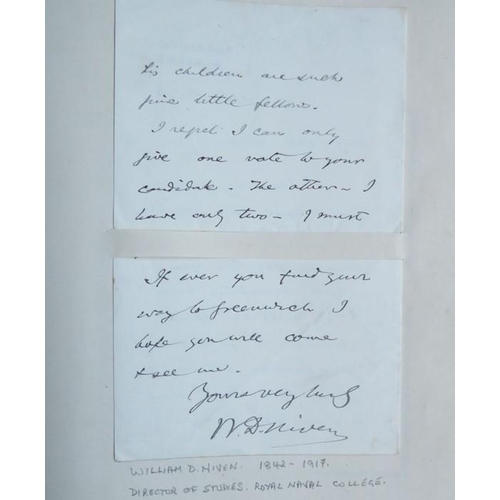 his children are such
fine little fellows.
I regret I can only
give one vote to your
candidate. The other - I
have only two - I must
If ever you find your
way to Greenwich I
hope you will come
& see me.
Yours very truly
W. D. Niven
WILLIAM D. NIVEN. 1842-1917.
DIRECTOR OF STUDIES. ROYAL NAVAL COLLEGE.